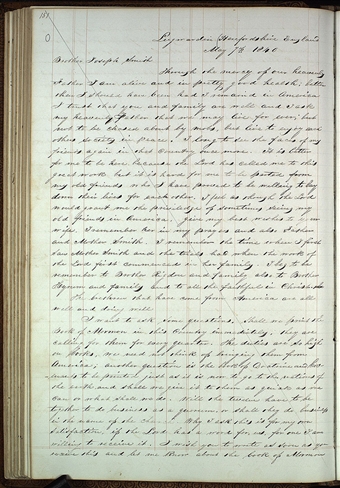 151
Lugwardin Herefordshire England
May 7th 1840
Brother Joseph Smith
Through the mercy of our heavenly
Father I am alive and in pretty good health, better
than I should have been had I remained in America
I trust that you and family are well and I ask
my heavenly Father that we may live for ever but
not to be chased about by mobs, but live to enjoy each
others society in peace. I long to see the faces of my
friends again in that Country once more. it is better
for me to be here because the Lord has called me to this
great work but it is hard for me to be parted from
my old friends who I have proved to be willing to lay
down their lives for each other. I feel as though the Lord
would grant me the privilege of sometime seeing my
old friends in America, give my best wishes to your
wife. I remember her in my prayers and also Father
and Mother Smith. I remember the time when I first
saw Mother Smith and the trials had when the work of
the Lord first commenced in her family. I beg to be
remember to Brother Rigdon and family also to Brother
Hyrum and family and to all the faithful in Christ
The brethren that have come from America are all
well and doing well
I want to ask some questions. Shall we print the
Book of Mormon in this Country immediately, they are
calling for them from every quarter. The duties are so high
on Books, we need not think of bringing them from
America. another question is the book of
to be printed just as it is now to go to the nations of
the earth and shall we give it to them as quick as we
can or what shall we do. Will the twelve have to be
together to do business as a quorum or shall they do business
in the name of the Why I ask this is for my own
satisfaction if the Lord has a word for us for one I am
willing to receive it. I wish you to write as soon as you
receive this and let me know about the book of Mormon